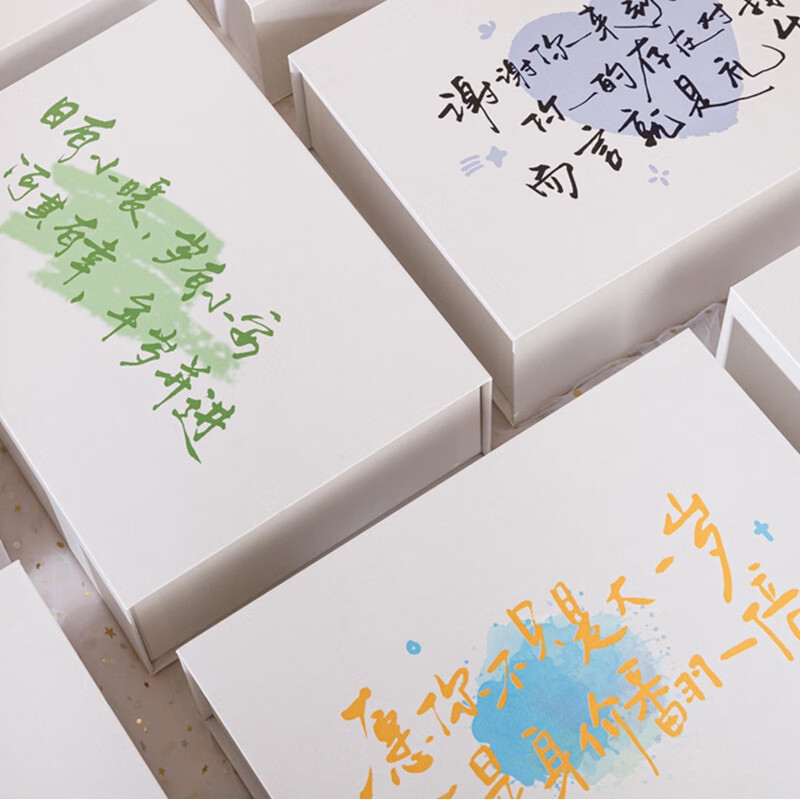 日有小暖、岁有小安
河其有幸、年岁并进
谢谢你来到
你的存在对我
而言就是礼
愿你不只是大一岁
是身价翻一倍